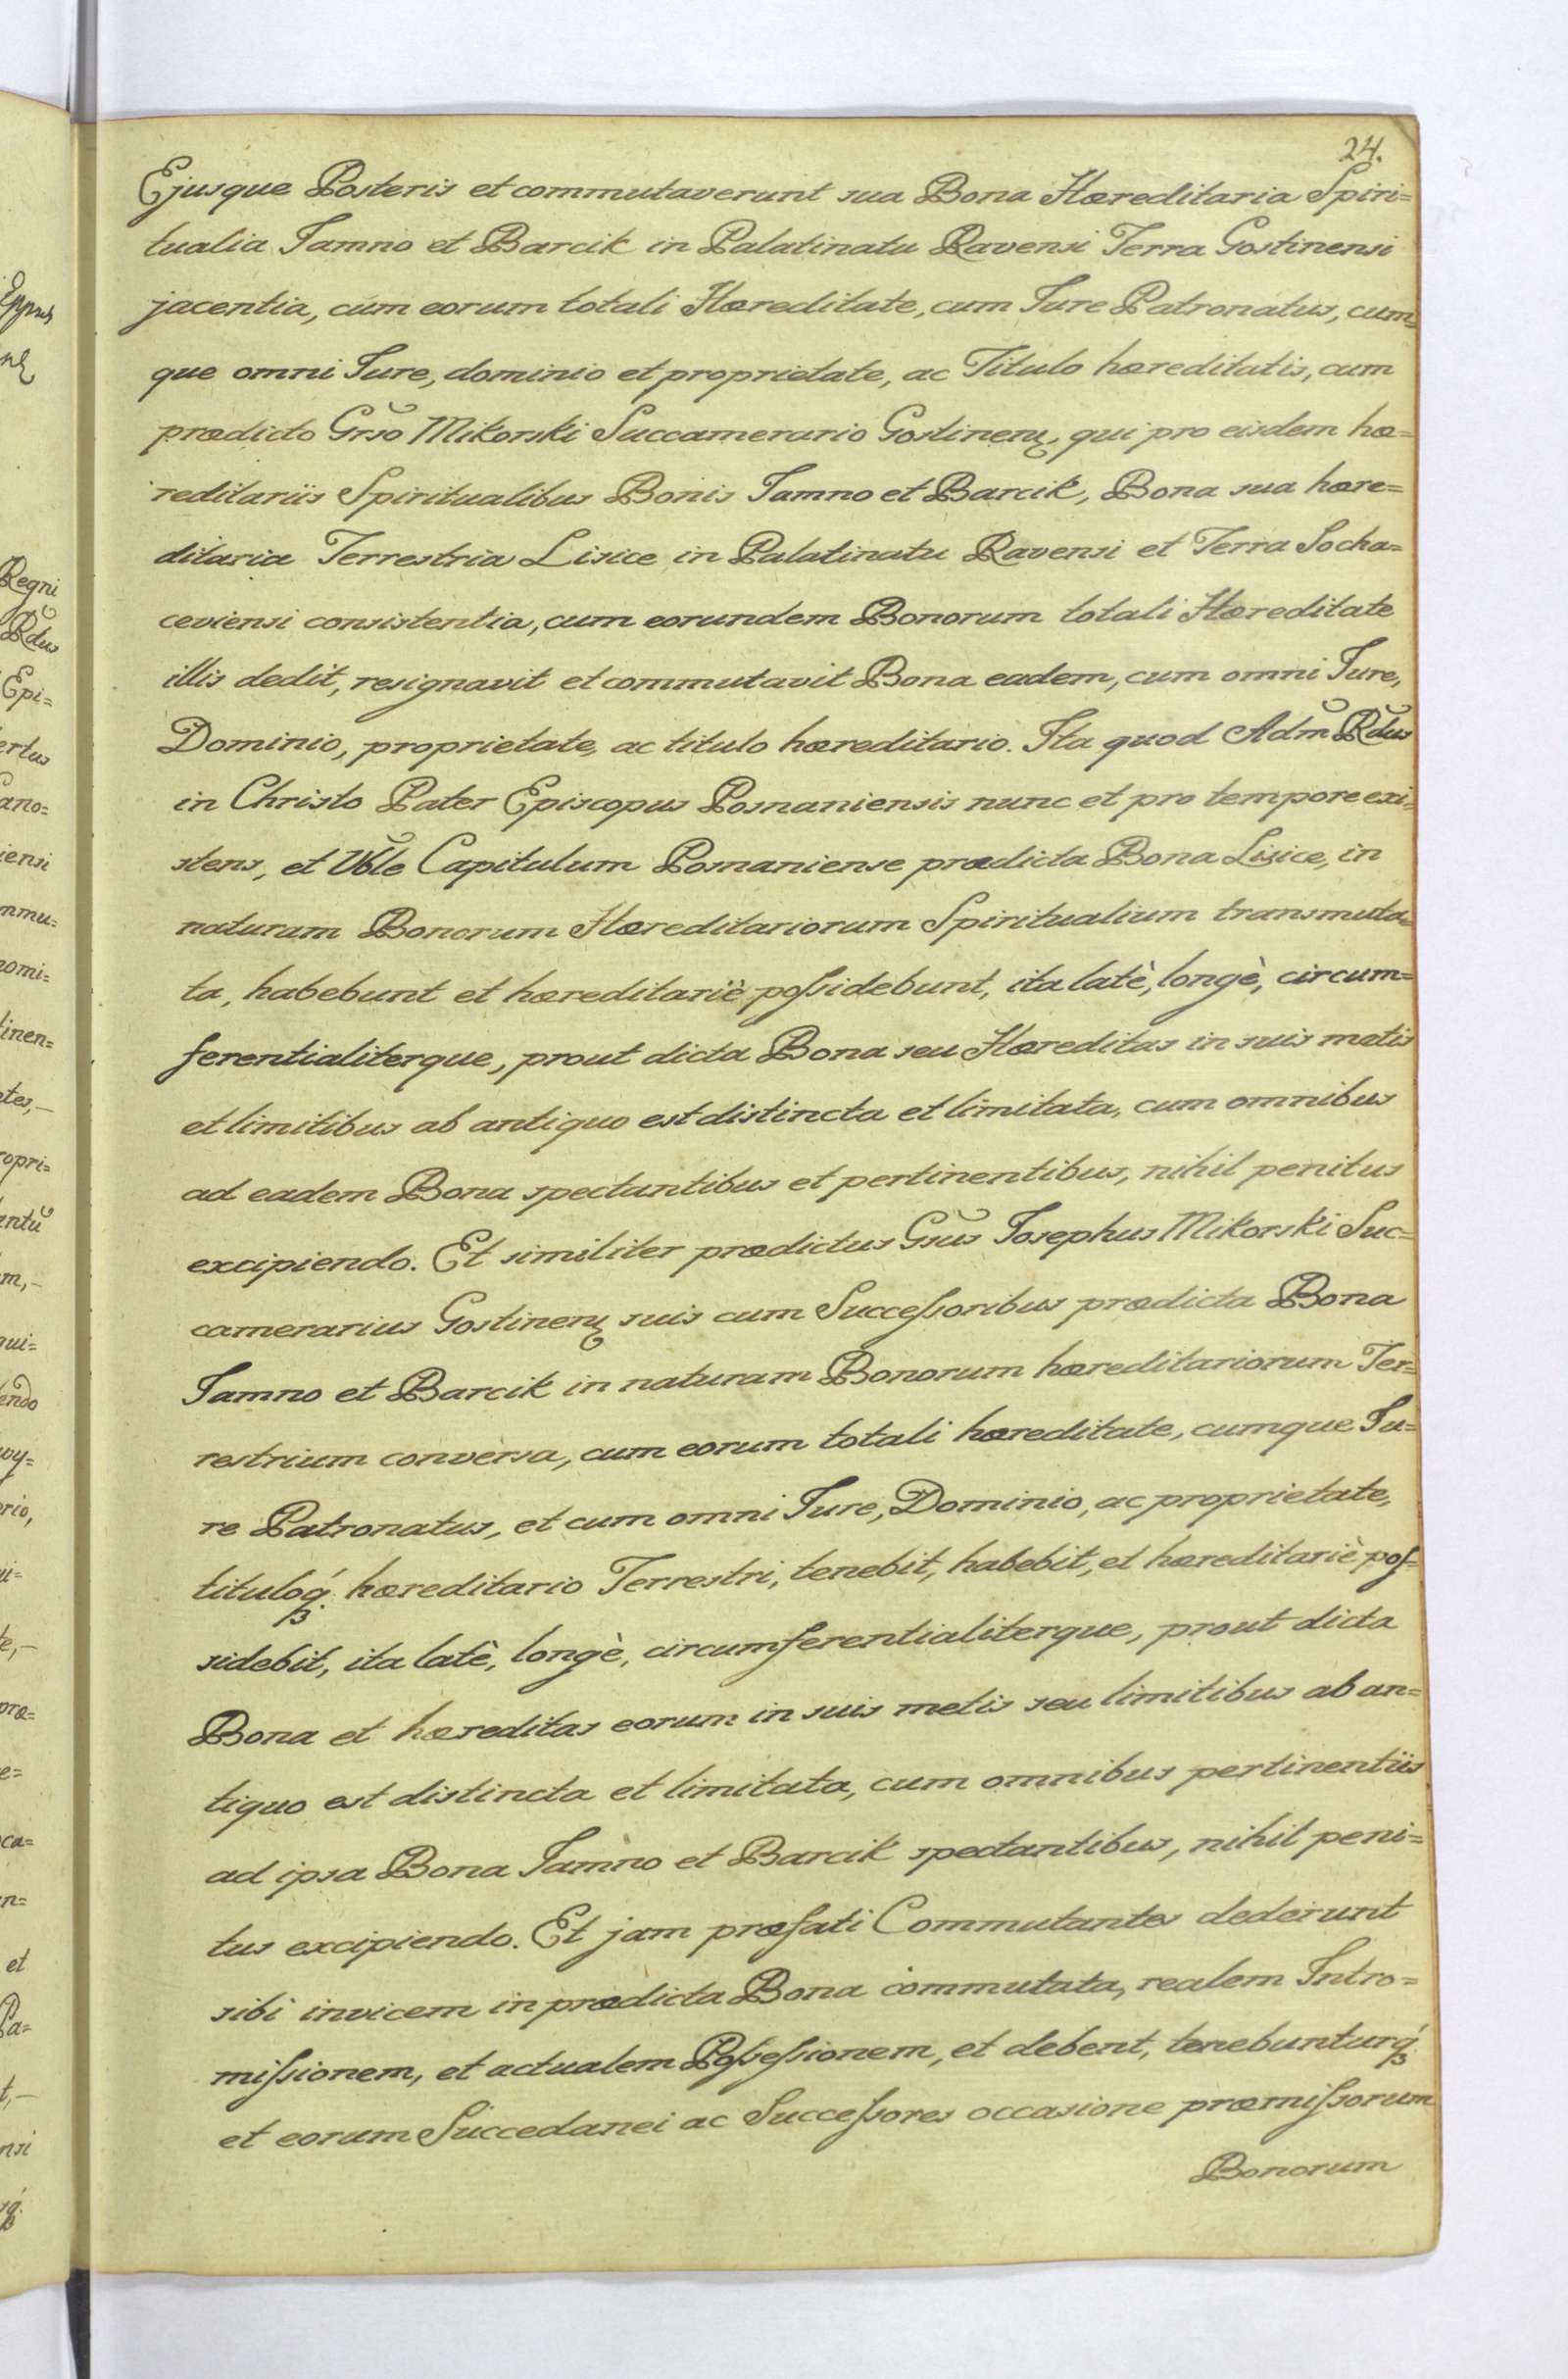 24.
Ejusque Posteris et commutaverunt sua Bona Hæreditaria Spiri=
tualia Jamno et Barcik in Palatinatu Ravensi Terra Gostinensi
jacentia, cum eorum totali Hæreditate, cum Jure Patronatus, cum=
que omni Jure, dominio et proprietate, ac Titulo hæreditatis, cum
prædicto Grso Mikorski Succamerario Gostinen, qui pro eisdem hæ=
reditariis Spiritualibus Bonis Jamno et Barcik, Bona sua hære=
ditaria Terrestria Lisice in Palatinatu Ravensi et Terra Socha=
ceviensi consistentia, cum eorundem Bonorum totali Hæreditate
illis dedit, resignavit et commutavit Bona eadem, cum omni Jure,
Dominio, proprietate, ac titulo hæreditario. Ita quod Adm̃ Rd̃us
in Christo Pater Episcopus Posnaniensis nunc et pro tempore exi=
stens, et Vb̃le Capitulum Posnaniense prædicta Bona Lisice, in
naturam Bonorum Hæreditariorum Spiritualium transmuta=
ta, habebunt et hæreditariè poſsidebunt, ita latè, longè, circum=
ferentialiterque, prout dicta Bona seu Hæreditas in suis metis
et limitibus ab antiquo est distincta et limitata, cum omnibus
ad eadem Bona spectantibus et pertinentibus, nihil penitus
excipiendo. Et similiter prædictus Gsũs Josephus Mikorski Suc=
camerarius Gostinen suis cum Succeſsoribus prædicta Bona
Jamno et Barcik in naturam Bonorum hæreditariorum Ter=
restrium conversa, cum eorum totali hæreditate, cumque Ju=
re Patronatus, et cum omni Jure, Dominio, ac proprietate,
tituloq́ꝫ hæreditario Terrestri, tenebit, habebit, et hæreditariè poſ=
sidebit, ita latè, longè, circumferentialiterque, prout dicta
Bona et hæreditas eorum in suis metis seu limitibus ab an=
tiquo est distincta et limitata, cum omnibus pertinentiis
ad ipsa Bona Jamno et Barcik spectantibus, nihil peni=
tus excipiendo. Et jam præfati Commutantes dederunt
sibi invicem in prædicta Bona commutata, realem Intro=
miſsionem, et actualem Poſseſsionem, et debent, tenebunturq́ꝫ
et eorum Succedanei ac Succeſsores occasione præmiſsorum
Bonorum